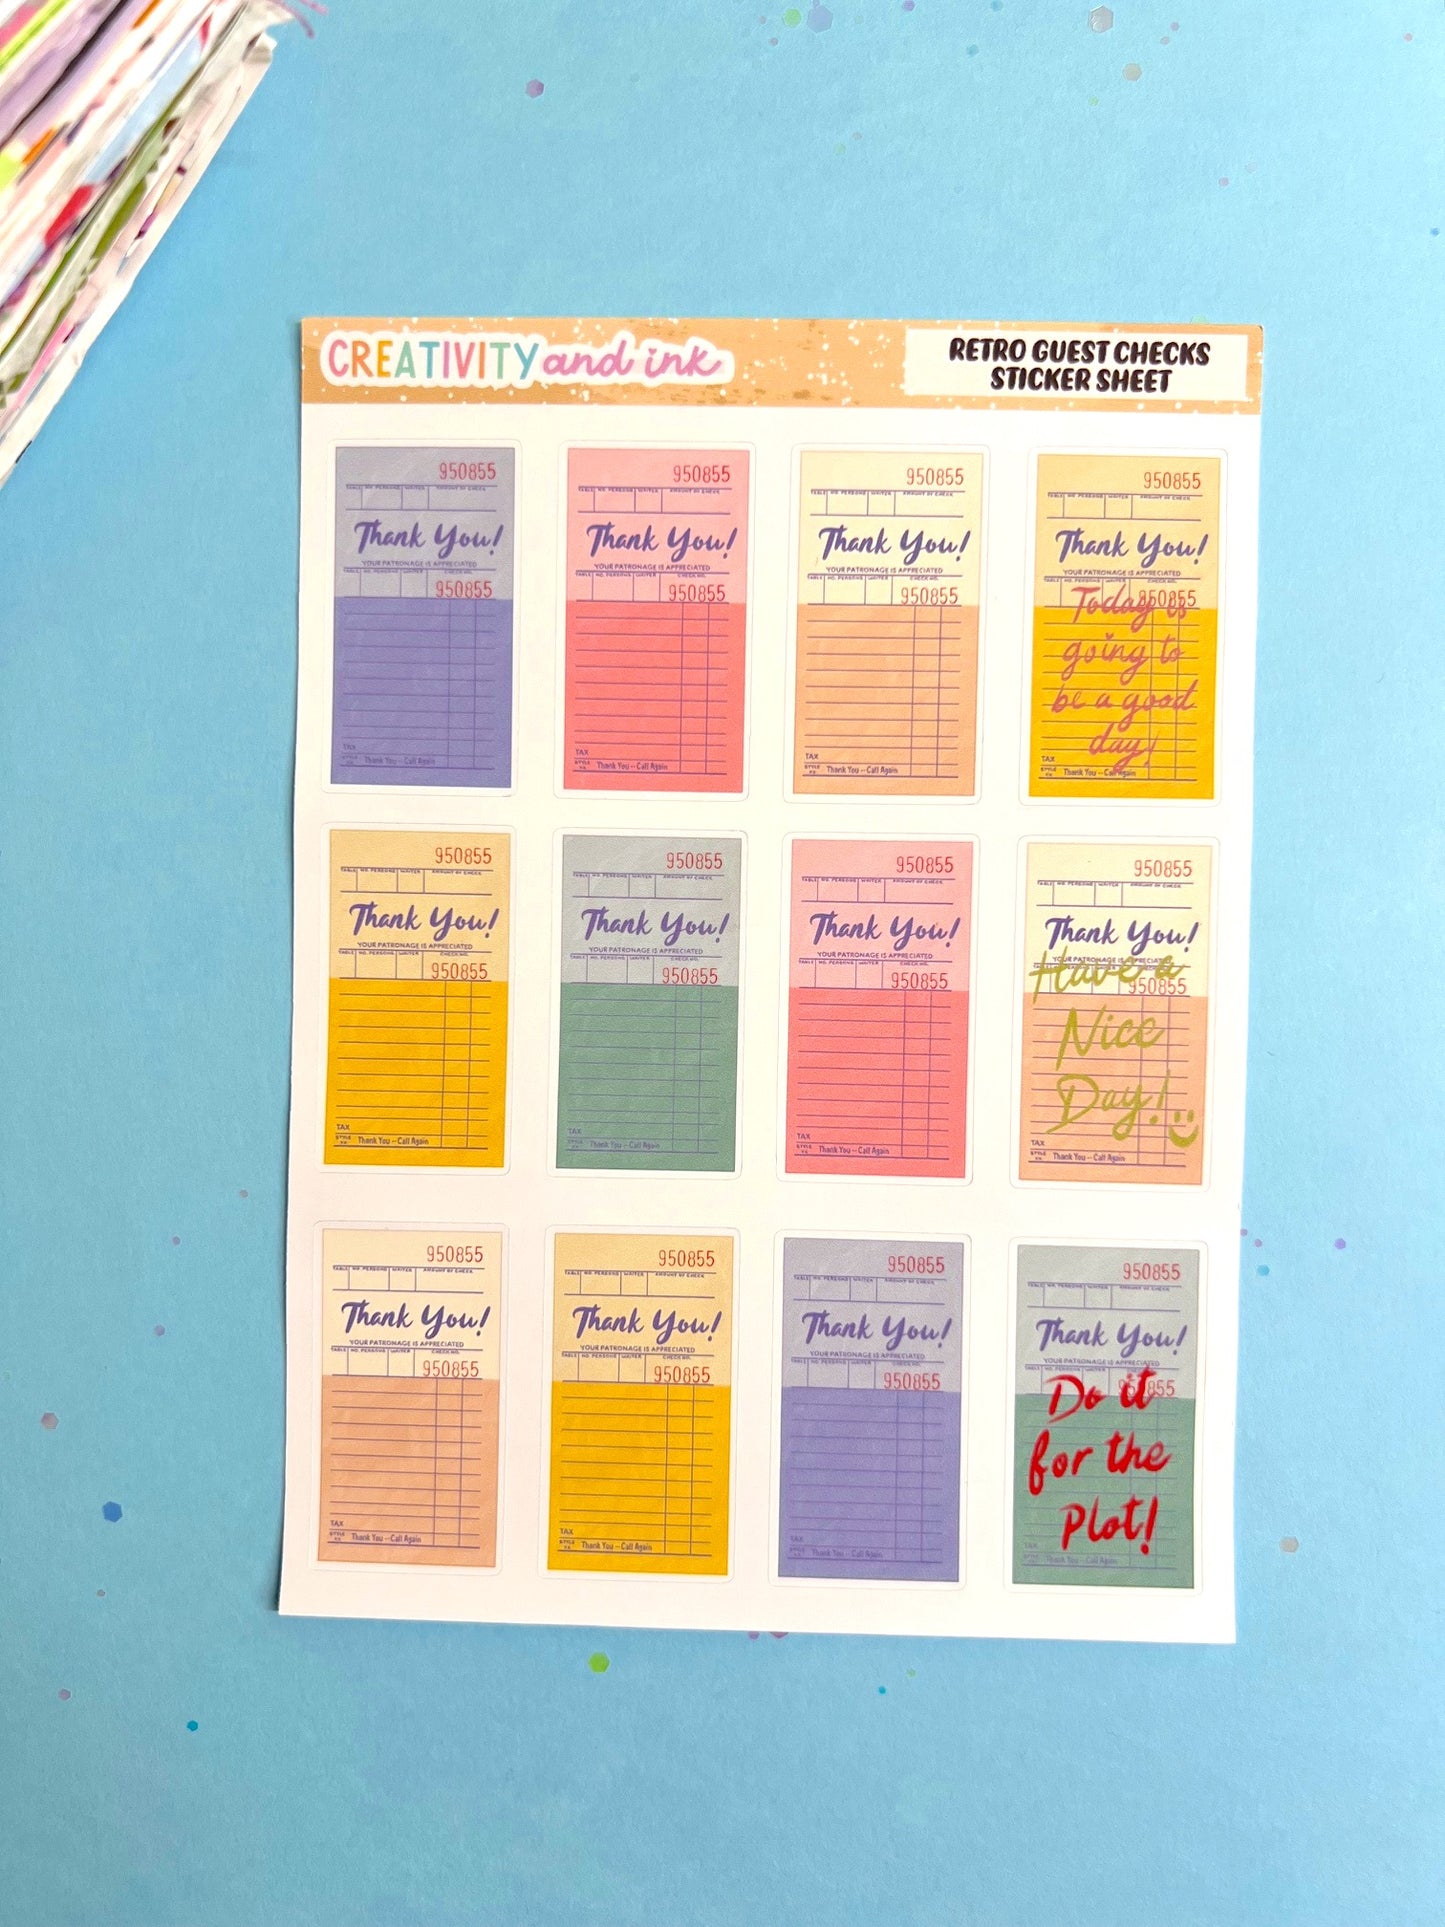 CREATIVITY and ink
RETRO GUEST CHECKS
STICKER SHEET
950855
TABLE NO. PERSONS WAITER AMOUNT OF CHECK
Thank You!
YOUR PATRONAGE IS APPRECIATED
TABLE NO. PERSONS WAITER CHECK NO.
950855
TAX
STYLE
Thank You -- Call Again
950855
TABLE NO. PERSONS WAITER AMOUNT OF CHECK
Thank You!
YOUR PATRONAGE IS APPRECIATED
TABLE NO. PERSONS WAITER CHECK NO.
950855
TAX
STYLE
Thank You -- Call Again
950855
TABLE NO. PERSONS WAITER AMOUNT OF CHECK
Thank You!
YOUR PATRONAGE IS APPRECIATED
TABLE NO. PERSONS WAITER CHECK NO.
950855
TAX
STYLE
Thank You -- Call Again
950855
TABLE NO. PERSONS WAITER AMOUNT OF CHECK
Thank You!
YOUR PATRONAGE IS APPRECIATED
TABLE NO. PERSONS WAITER CHECK NO.
950855
Today is
going to
be a good
day!
TAX
STYLE
Thank You -- Call Again
950855
TABLE NO. PERSONS WAITER AMOUNT OF CHECK
Thank You!
YOUR PATRONAGE IS APPRECIATED
TABLE NO. PERSONS WAITER CHECK NO.
950855
TAX
STYLE
Thank You -- Call Again
950855
TABLE NO. PERSONS WAITER AMOUNT OF CHECK
Thank You!
YOUR PATRONAGE IS APPRECIATED
TABLE NO. PERSONS WAITER CHECK NO.
950855
TAX
STYLE
Thank You -- Call Again
950855
TABLE NO. PERSONS WAITER AMOUNT OF CHECK
Thank You!
YOUR PATRONAGE IS APPRECIATED
TABLE NO. PERSONS WAITER CHECK NO.
950855
TAX
STYLE
Thank You -- Call Again
950855
TABLE NO. PERSONS WAITER AMOUNT OF CHECK
Thank You!
YOUR PATRONAGE IS APPRECIATED
950855
Have a
Nice
Day!
TAX
STYLE
Thank You -- Call Again
950855
TABLE NO. PERSONS WAITER AMOUNT OF CHECK
Thank You!
YOUR PATRONAGE IS APPRECIATED
TABLE NO. PERSONS WAITER CHECK NO.
950855
TAX
STYLE
Thank You -- Call Again
950855
TABLE NO. PERSONS WAITER AMOUNT OF CHECK
Thank You!
YOUR PATRONAGE IS APPRECIATED
TABLE NO. PERSONS WAITER CHECK NO.
950855
TAX
STYLE
Thank You -- Call Again
950855
TABLE NO. PERSONS WAITER AMOUNT OF CHECK
Thank You!
YOUR PATRONAGE IS APPRECIATED
TABLE NO. PERSONS WAITER CHECK NO.
950855
TAX
STYLE
Thank You -- Call Again
950855
TABLE NO. PERSONS WAITER AMOUNT OF CHECK
Thank You!
YOUR PATRONAGE IS APPRECIATED
TABLE NO. PERSONS WAITER
950855
Do it
for the
Plot!
TAX
STYLE
Thank You -- Call Again